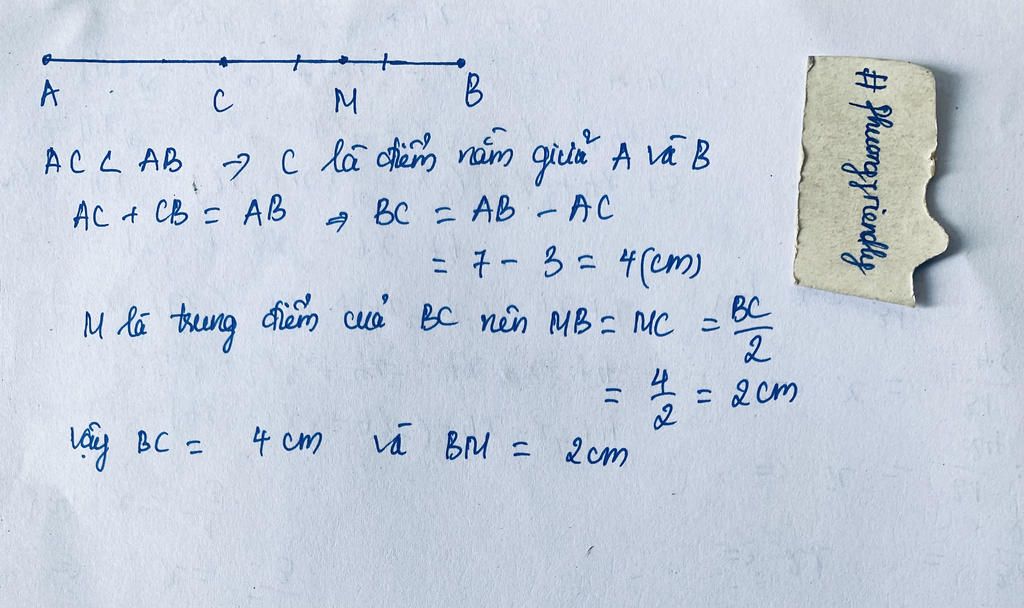 A C M B
AC < AB → C là điểm nằm giữa A và B
AC + CB = AB ⇒ BC = AB - AC
= 7 - 3 = 4(cm)
M là trung điểm của BC nên MB = MC = BC/2
= 4/2 = 2cm
Vậy BC = 4 cm và BM = 2cm
# phuongfriendly